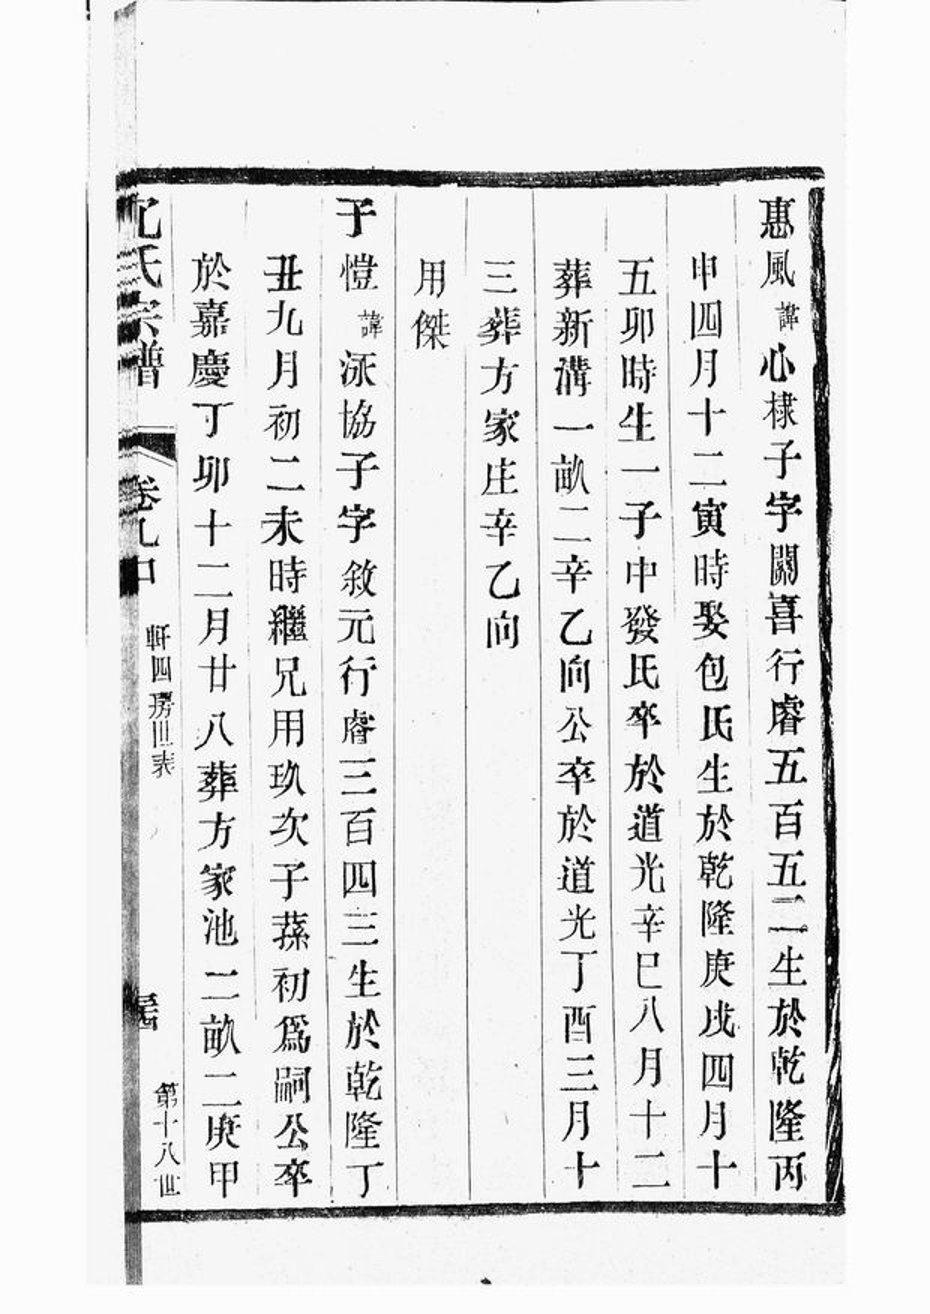 惠風諱心棣子字闢喜行睿五百五二生於乾隆丙
申四月十二寅時娶包氏生於乾隆庚戌四月十
五卯時生一子中發氏卒於道光辛巳八月十二
葬新溝一畝二辛乙向公卒於道光丁酉三月十
三葬方家庄辛乙向
用傑
于愷諱泳協子字敘元行睿三百四三生於乾隆丁
丑九月初二未時繼兄用玖次子蓀初爲嗣公卒
於嘉慶丁卯十二月廿八葬方家池二畝二庚甲
氏宗譜 卷九中 軒四房世表 第十八世